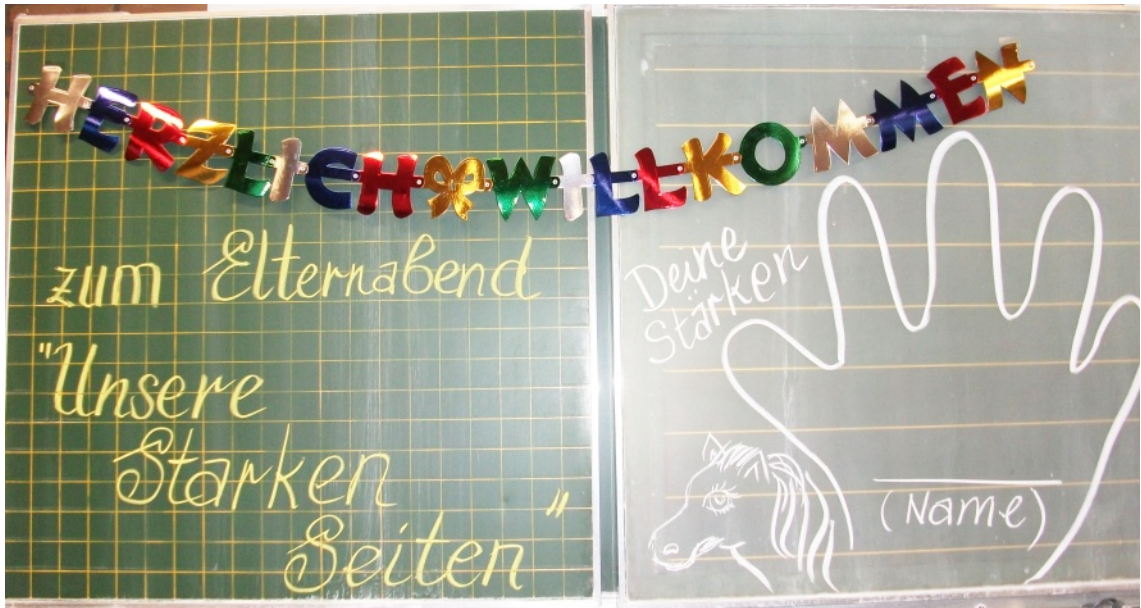 HERZLICH WILLKOMMEN
zum Elternabend
"Unsere
Starken
Seiten"
Deine
Stärken
(Name)